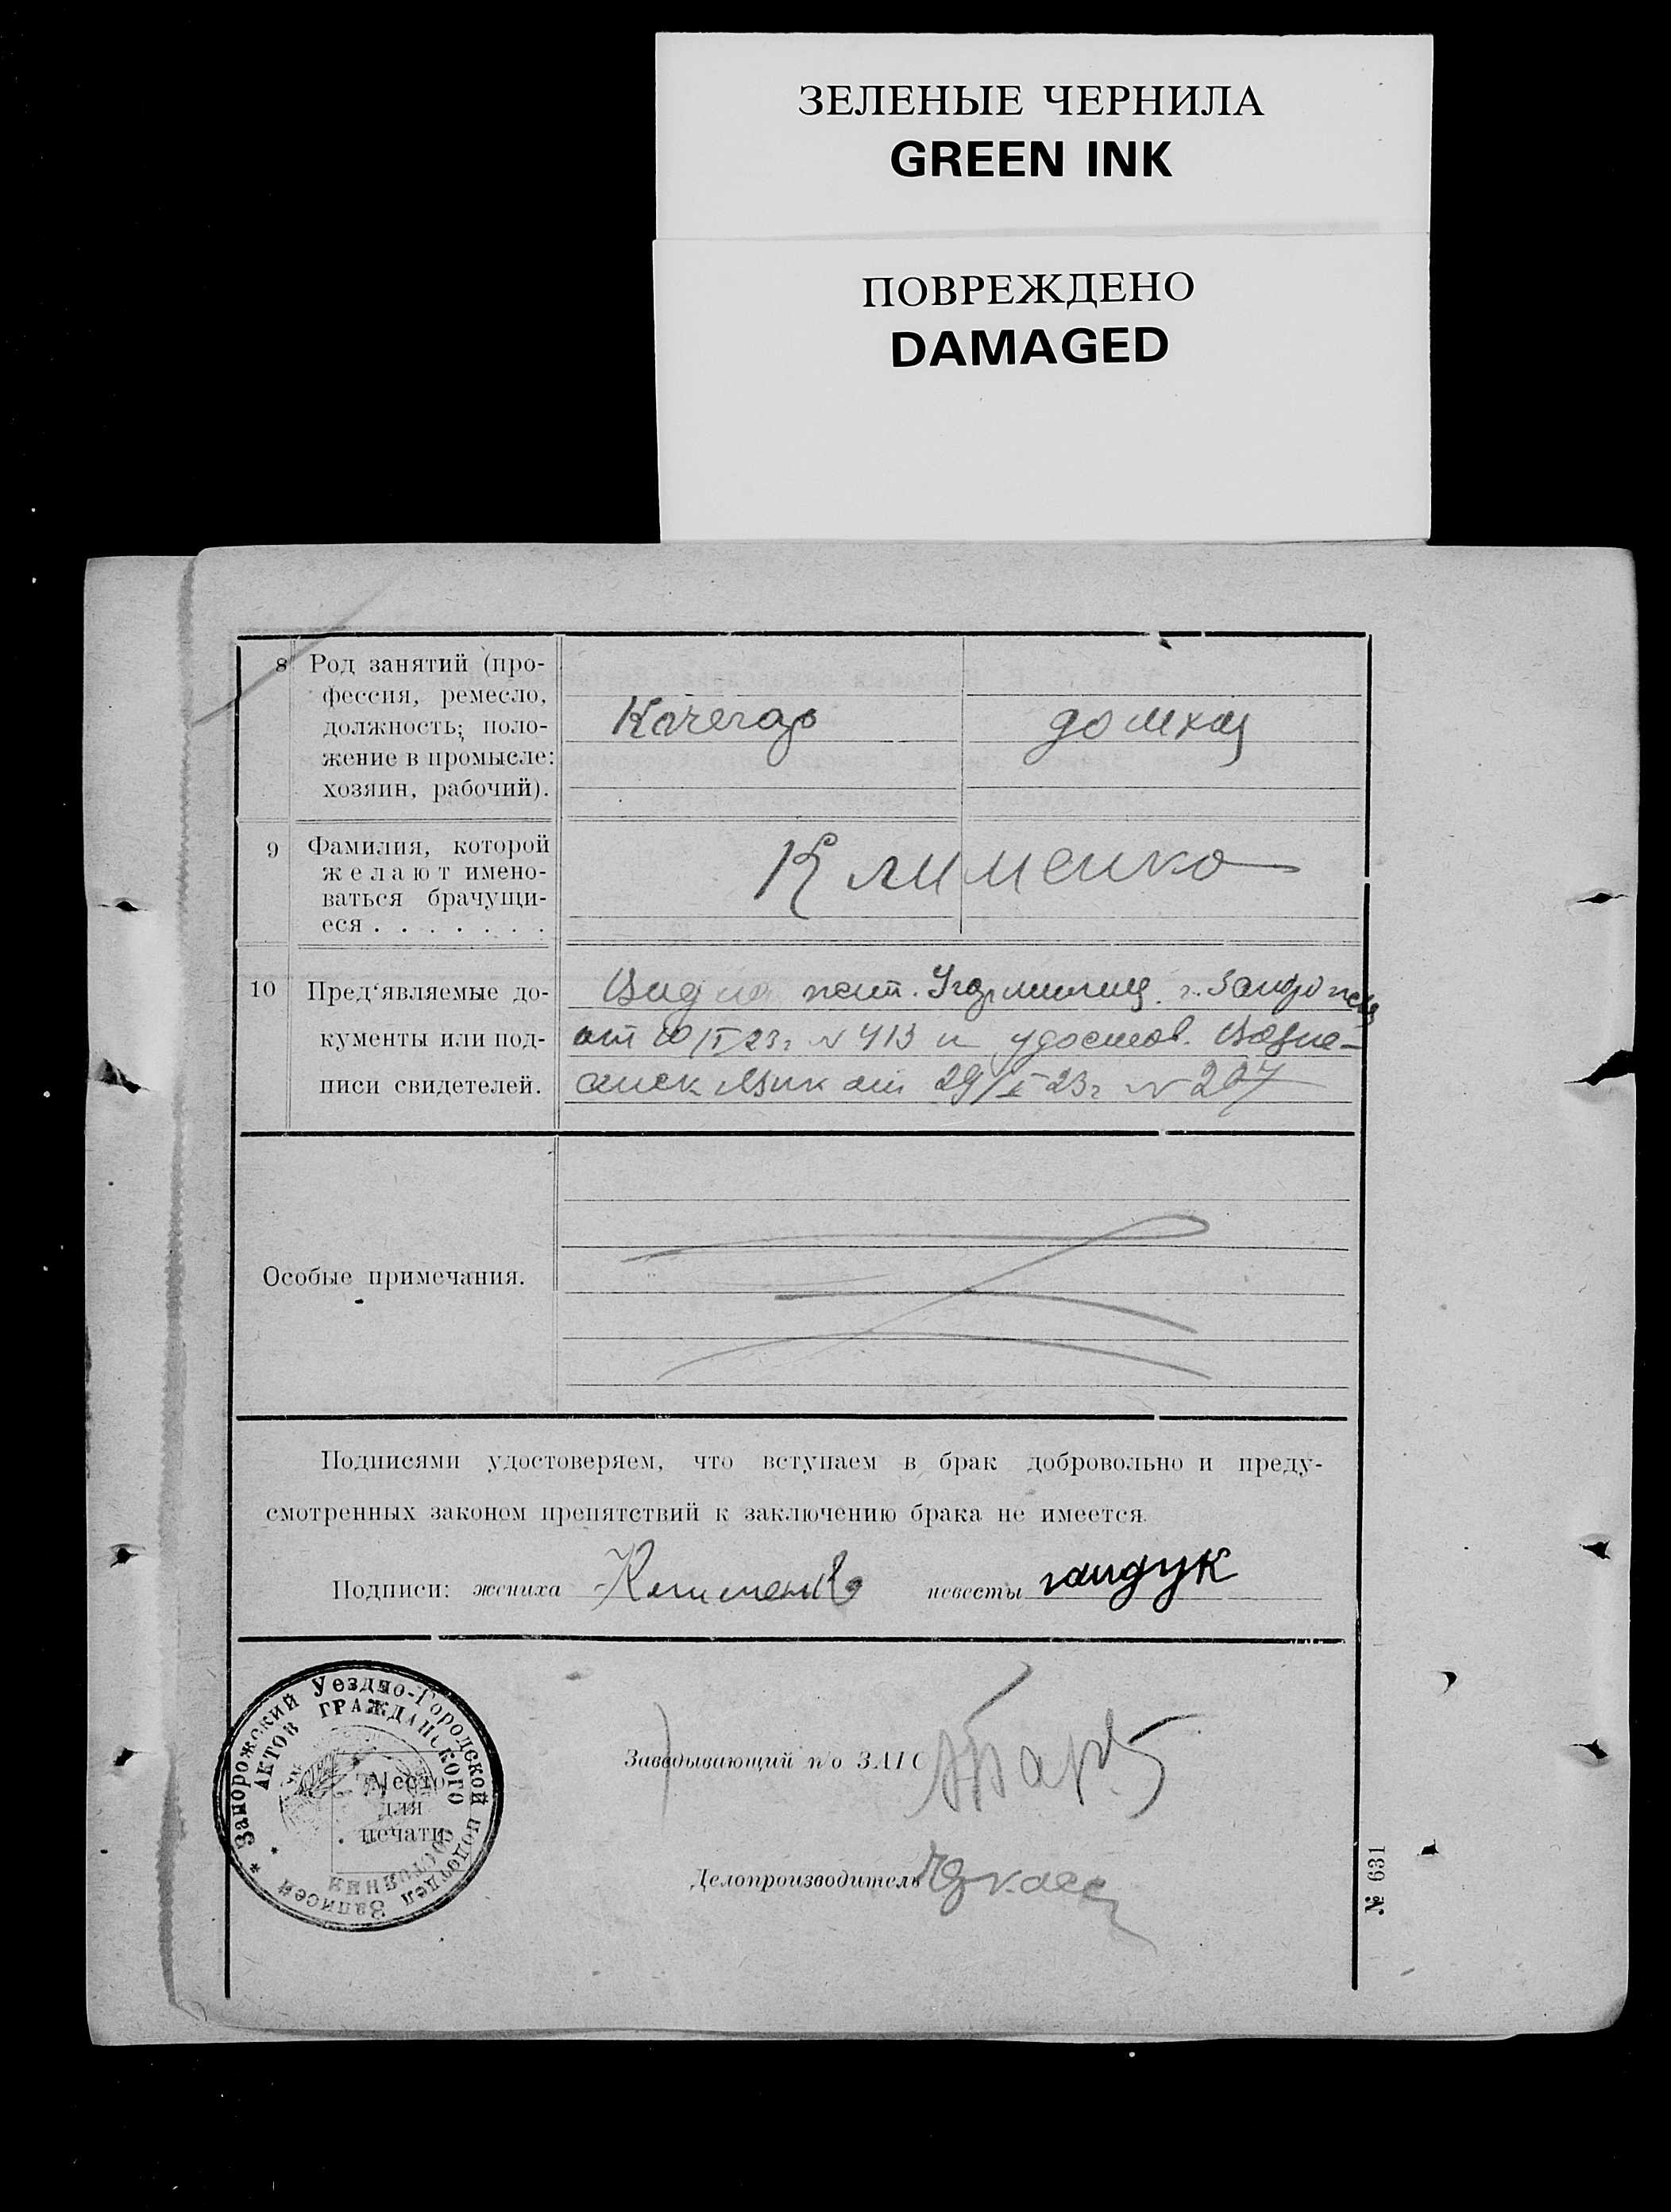 ЗЕЛЕНЫЕ ЧЕРНИЛА
GREEN INK
ПОВРЕЖДЕНО
DAMAGED
8 Род занятий (про-
фессия, ремесло,
должность; поло-
жение в промысле:
хозяин, рабочий).
Кочегар
домхоз
9 Фамилия, которой
желают имено-
ваться брачущи-
еся . . . . . . .
Клименко
10 Пред'являемые до-
кументы или под-
писи свидетелей.
г. Запорожья
от 10/I 23г N 413 и удостов. Возне-
сенск от 29/I 23г N 207
Особые примечания.
Подписями удостоверяем, что вступаем в брак добровольно и преду-
смотренных законом препятствий к заключению брака не имеется.
Подписи: жениха Клименко невесты гайдук
Запорожский Уездно-Городской подотдел Записей
АКТОВ ГРАЖДАНСКОГО СОСТОЯНИЯ
Место
для
печати
Заведывающий п/о ЗАГС
Делопроизводитель
№ 631